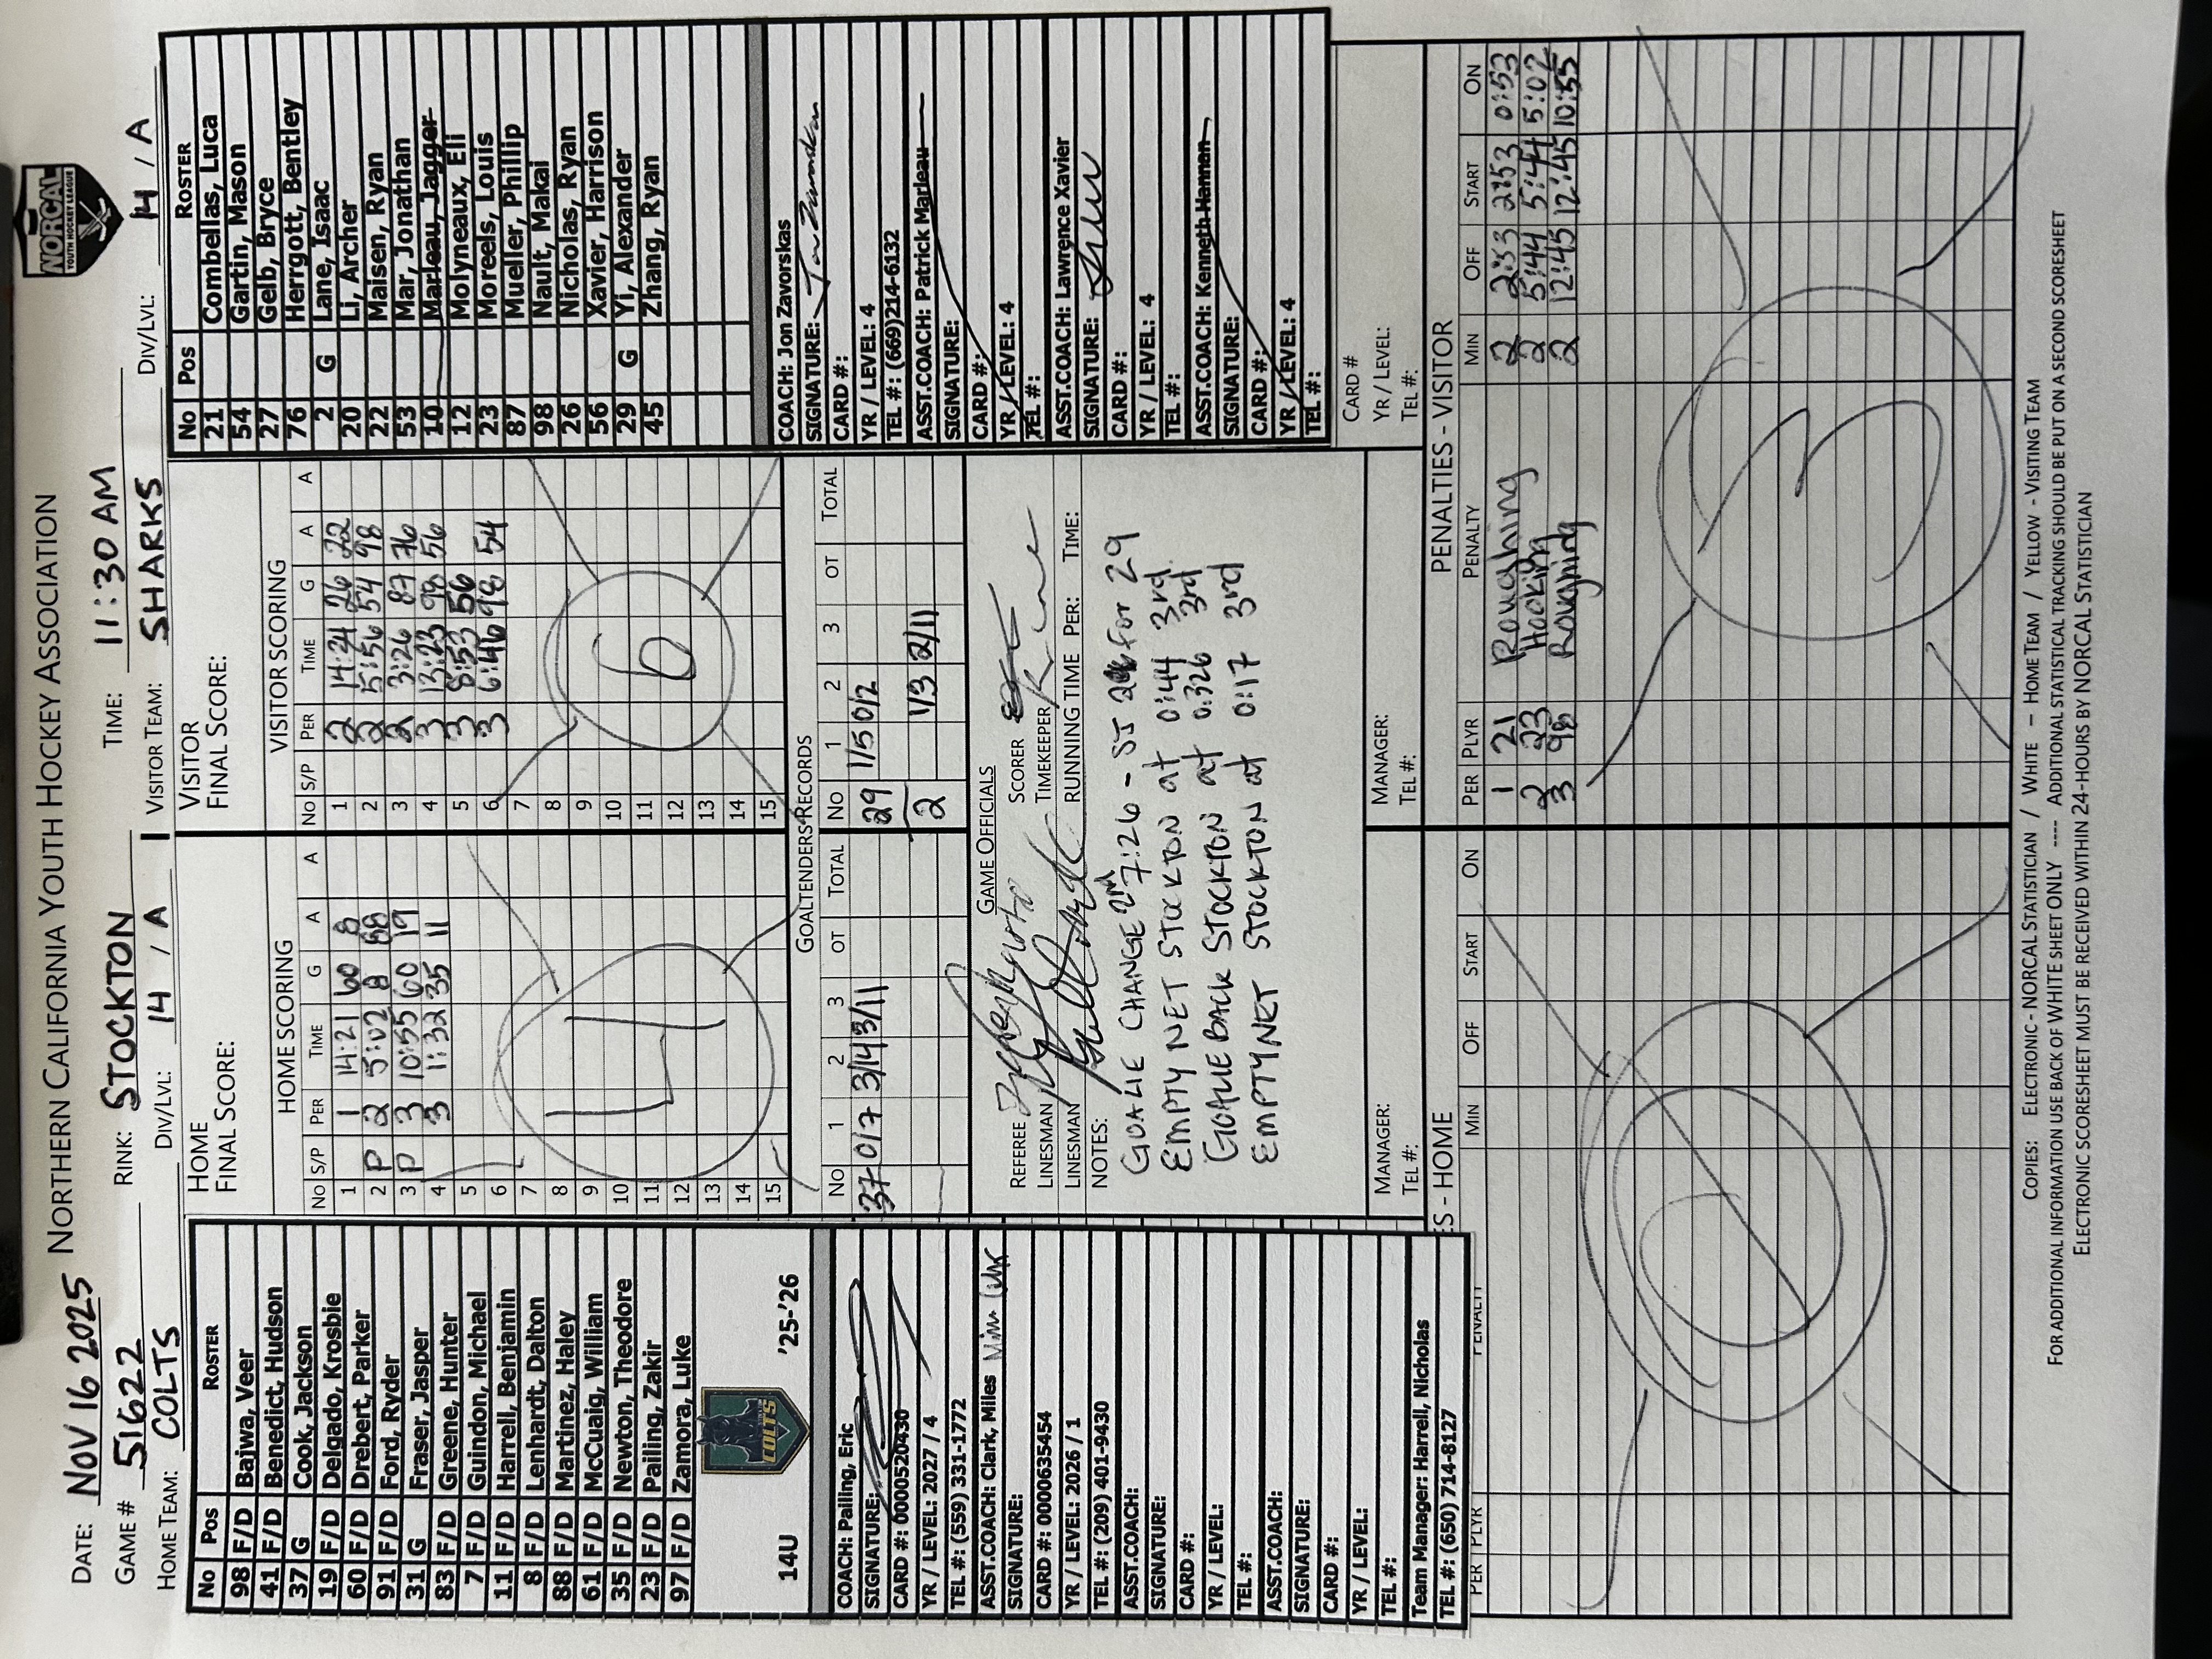 NORTHERN CALIFORNIA YOUTH HOCKEY ASSOCIATION
NORCAL
YOUTH HOCKEY LEAGUE
DATE: NOV 16 2025
GAME # 51622 RINK: STOCKTON TIME: 11:30 AM
HOME TEAM: COLTS DIV/LVL: 14 / A VISITOR TEAM: SHARKS DIV/LVL: 14 / A
No Pos ROSTER
98 F/D Bajwa, Veer
41 F/D Benedict, Hudson
37 G Cook, Jackson
19 F/D Delgado, Krosbie
60 F/D Drebert, Parker
91 F/D Ford, Ryder
31 G Fraser, Jasper
83 F/D Greene, Hunter
7 F/D Guindon, Michael
11 F/D Harrell, Benjamin
8 F/D Lenhardt, Dalton
88 F/D Martinez, Haley
61 F/D McCuaig, William
35 F/D Newton, Theodore
23 F/D Pailing, Zakir
97 F/D Zamora, Luke
COLTS
14U '25-'26
COACH: Pailing, Eric
SIGNATURE:
CARD #: 0000520430
YR / LEVEL: 2027 / 4
TEL #: (559) 331-1772
ASST.COACH: Clark, Miles
SIGNATURE:
CARD #: 0000635454
YR / LEVEL: 2026 / 1
TEL #: (209) 401-9430
ASST.COACH:
SIGNATURE:
CARD #:
YR / LEVEL:
TEL #:
ASST.COACH:
SIGNATURE:
CARD #:
YR / LEVEL:
TEL #:
Team Manager: Harrell, Nicholas
TEL #: (650) 714-8127
HOME
FINAL SCORE:
HOME SCORING
No S/P PER TIME G A A
1 1 14:21 60 8
2 P 2 5:02 8 88
3 P 3 10:55 60 19
4 3 1:32 35 11
5
6
7
8
9
10
11
12
13
14
15
4
VISITOR
FINAL SCORE:
VISITOR SCORING
No S/P PER TIME G A A
1 2 14:24 26 22
2 2 5:56 54 98
3 2 3:26 87 76
4 3 13:23 98 56
5 3 8:53 56
6 3 6:46 98 54
7
8
9
10
11
12
13
14
15
6
GOALTENDERS RECORDS
No 1 2 3 OT TOTAL No 1 2 3 OT TOTAL
37 0/7 3/14 3/11 29 1/5 0/2
2 1/3 2/11
GAME OFFICIALS
REFEREE SCORER
LINESMAN TIMEKEEPER
LINESMAN RUNNING TIME PER: TIME:
NOTES:
GOALIE CHANGE 2nd 7:26 - SJ 2 for 29
EMPTY NET STOCKTON at 0:44 3rd
GOALIE BACK STOCKTON at 0:326 3rd
EMPTY NET STOCKTON at 0:17 3rd
MANAGER:
TEL #:
MANAGER:
TEL #:
CARD #
YR / LEVEL:
TEL #:
No Pos ROSTER
21 Combellas, Luca
54 Gartin, Mason
27 Gelb, Bryce
76 Herrgott, Bentley
2 G Lane, Isaac
20 Li, Archer
22 Maisen, Ryan
53 Mar, Jonathan
10 Marleau, Jagger
12 Molyneaux, Eli
23 Moreels, Louis
87 Mueller, Phillip
98 Nault, Makai
26 Nicholas, Ryan
56 Xavier, Harrison
29 G Yi, Alexander
45 Zhang, Ryan
COACH: Jon Zavorskas
SIGNATURE:
CARD #:
YR / LEVEL: 4
TEL #: (669)214-6132
ASST.COACH: Patrick Marleau
SIGNATURE:
CARD #:
YR / LEVEL: 4
TEL #:
ASST.COACH: Lawrence Xavier
SIGNATURE:
CARD #:
YR / LEVEL: 4
TEL #:
ASST.COACH: Kenneth Hannan
SIGNATURE:
CARD #:
YR / LEVEL: 4
TEL #:
S - HOME
PER PLYR PENALTY MIN OFF START ON
0
PENALTIES - VISITOR
PER PLYR PENALTY MIN OFF START ON
1 21 Roughing 2 2:53 2:53 0:53
2 23 Hooking 2 5:44 5:44 5:02
3 98 Roughing 2 12:45 12:45 10:55
3
COPIES: ELECTRONIC - NORCAL STATISTICIAN / WHITE – HOME TEAM / YELLOW - VISITING TEAM
FOR ADDITIONAL INFORMATION USE BACK OF WHITE SHEET ONLY ---- ADDITIONAL STATISTICAL TRACKING SHOULD BE PUT ON A SECOND SCORESHEET
ELECTRONIC SCORESHEET MUST BE RECEIVED WITHIN 24-HOURS BY NORCAL STATISTICIAN